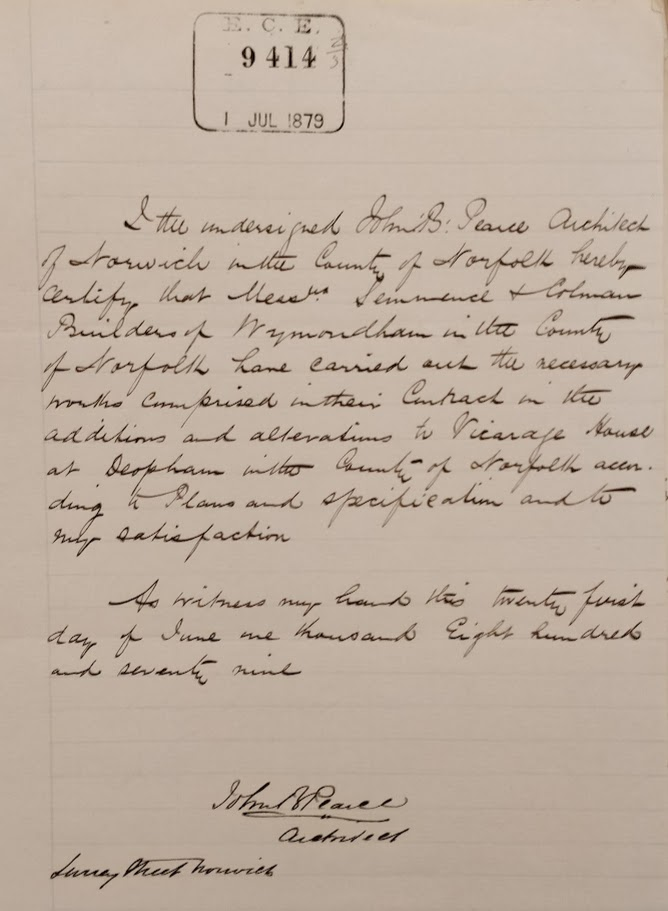 E. C. E.
9414
1 JUL 1879
I the undersigned John B. Pearce Architect
of Norwich in the County of Norfolk hereby
certify that Messrs Semmence & Colman
Builders of Wymondham in the County
of Norfolk have carried out the necessary
works comprised in their Contract in the
additions and alterations to Vicarage House
at Deopham in the County of Norfolk accor-
ding to Plans and specification and to
my satisfaction
As witness my hand this twenty first
day of June one thousand Eight hundred
and seventy nine
John B Pearce
Architect
Surrey Street Norwich